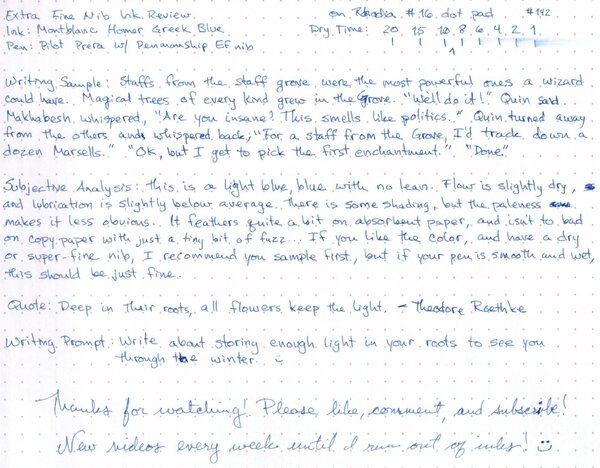 Extra Fine Nib Ink Review
on Rhodia #16 dot pad #142
Ink: Montblanc Homer Greek Blue
Dry Time: 20 15 10 8 6 4 2 1
Pen: Pilot Prera w/ Penmanship EF nib
Writing Sample: Staffs from the staff grove were the most powerful ones a wizard
could have. Magical trees of every kind grew in the Grove. "We'll do it!" Quin said.
Makhabesh whispered, "Are you insane? This smells like politics." Quin turned away
from the others and whispered back, "For a staff from the Grove, I'd track down a
dozen Marsells." "Ok, but I get to pick the first enchantment." "Done."
Subjective Analysis: this is a light blue, blue with no lean. Flow is slightly dry,
and lubrication is slightly below average. There is some shading, but the paleness
makes it less obvious. It feathers quite a bit on absorbent paper, and isn't to bad
on copy paper with just a tiny bit of fuzz... If you like the color, and have a dry
or super-fine nib, I recommend you sample first, but if your pen is smooth and wet,
this should be just fine.
Quote: Deep in Their roots, all flowers keep the light. - Theodore Roethke
Writing Prompt: Write about storing enough light in your roots to see you
through the winter. :)
Thanks for watching! Please like, comment, and subscribe!
New videos every week until I run out of inks! :)